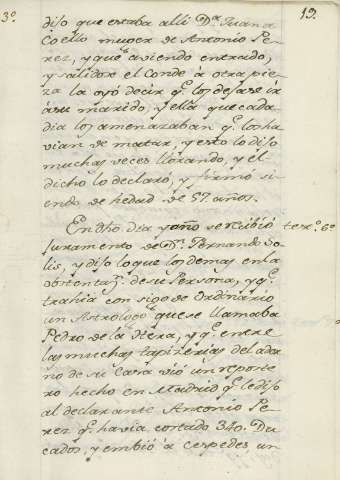 3º 19.
dijo que estaba alli Dª. Juana
Coello muger de Antonio Pe-
rez, y que aviendo entrado,
y salidose el Conde a otra pie-
za la oyó decir qᵉ. los dejase ir
á su marido, y ella que cada
dia los amenazaban qᵉ. los ha-
vian de matar, y esto lo dijo
muchas veces llorando, y el
dicho lo declaró, y firmó si-
endo de hedad de 57. años.
En dho dia y año se recibió texº. 6º
juramento de Dⁿ. Fernando So-
lis, y dijo lo que los demas en la
obstentazⁿ. de su Persona, y qᵉ.
trahia con sigo de Ordinario
un Astrologo que se llamaba
Pedro de la Hera, y qᵉ. entre
las muchas tapizerias del ador-
no de su Casa vió un reposte-
ro hecho en Madrid qᵉ. le dijo
al declarante Antonio Pe-
rez qᵉ. havia costado 340. Du-
cados, y embió á Cespedes, un